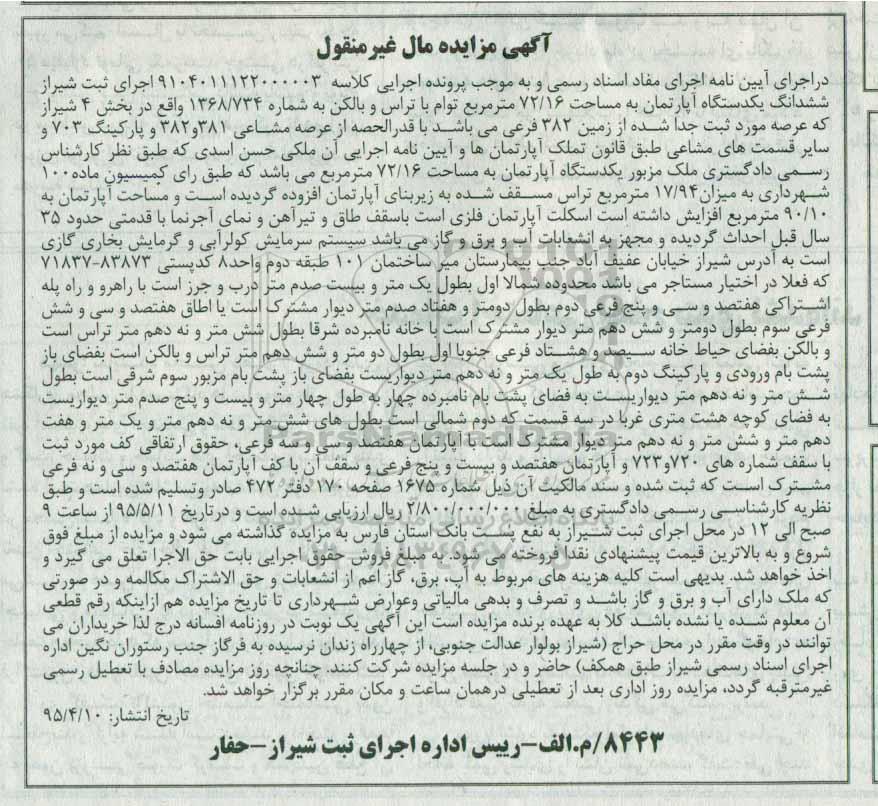 آگهی مزایده مال غیرمنقول
دراجرای آیین نامه اجرای مفاد اسناد رسمی و به موجب پرونده اجرایی کلاسه ۹۱۰۴۰۱۱۱۲۲۰۰۰۰۰۳ اجرای ثبت شیراز
ششدانگ یکدستگاه آپارتمان به مساحت ۷۲/۱۶ مترمربع توام با تراس و بالکن به شماره ۱۳۶۸/۷۳۴ واقع در بخش ۴ شیراز
که عرصه مورد ثبت جدا شده از زمین ۳۸۲ فرعی می باشد با قدرالحصه از عرصه مشاعی ۳۸۱و۳۸۲ و پارکینگ ۷۰۳ و
سایر قسمت های مشاعی طبق قانون تملک آپارتمان ها و آیین نامه اجرایی آن ملکی حسن اسدی که طبق نظر کارشناس
رسمی دادگستری ملک مزبور یکدستگاه آپارتمان به مساحت ۷۲/۱۶ مترمربع می باشد که طبق رای کمیسیون ماده۱۰۰
شهرداری به میزان۱۷/۹۴ مترمربع تراس مسقف شده به زیربنای آپارتمان افزوده گردیده است و مساحت آپارتمان به
۹۰/۱۰ مترمربع افزایش داشته است اسکلت آپارتمان فلزی است باسقف طاق و تیرآهن و نمای آجرنما با قدمتی حدود ۳۵
سال قبل احداث گردیده و مجهز به انشعابات آب و برق و گاز می باشد سیستم سرمایش کولرآبی و گرمایش بخاری گازی
است به آدرس شیراز خیابان عفیف آباد جنب بیمارستان میر ساختمان ۱۰۱ طبقه دوم واحد۸ کدپستی ۸۳۸۷۳-۷۱۸۳۷
که فعلا در اختیار مستاجر می باشد محدوده شمالا اول بطول یک متر و بیست صدم متر درب و جرز است با راهرو و راه پله
اشتراکی هفتصد و سی و پنج فرعی دوم بطول دومتر و هفتاد صدم متر دیوار مشترک است یا اطاق هفتصد و سی و شش
فرعی سوم بطول دومتر و شش دهم متر دیوار مشترک است با خانه نامبرده شرقا بطول شش متر و نه دهم متر تراس است
و بالکن بفضای حیاط خانه سیصد و هشتاد فرعی جنوبا اول بطول دو متر و شش دهم متر تراس و بالکن است بفضای باز
پشت بام ورودی و پارکینگ دوم به طول یک متر و نه دهم متر دیواریست بفضای باز پشت بام مزبور سوم شرقی است بطول
شش متر و نه دهم متر دیواریست به فضای پشت بام نامبرده چهار به طول چهار متر و بیست و پنج صدم متر دیواریست
به فضای کوچه هشت متری غربا در سه قسمت که دوم شمالی است بطول های شش متر و نه دهم متر و یک متر و هفت
دهم متر و شش متر و نه دهم متر دیوار مشترک است با آپارتمان هفتصد و سی و سه فرعی، حقوق ارتفاقی کف مورد ثبت
با سقف شماره های ۷۲۰و۷۲۳ و آپارتمان هفتصد و بیست و پنج فرعی و سقف آن با کف آپارتمان هفتصد و سی و نه فرعی
مشترک است که ثبت شده و سند مالکیت آن ذیل شماره ۱۶۷۵ صفحه ۱۷۰ دفتر ۴۷۲ صادر وتسلیم شده است و طبق
نظریه کارشناسی رسمی دادگستری به مبلغ ۲/۸۰۰/۰۰۰/۰۰۰ ریال ارزیابی شده است و درتاریخ ۹۵/۵/۱۱ از ساعت ۹
صبح الی ۱۲ در محل اجرای ثبت شیراز به نفع پست بانک استان فارس به مزایده گذاشته می شود و مزایده از مبلغ فوق
شروع و به بالاترین قیمت پیشنهادی نقدا فروخته می شود. به مبلغ فروش حقوق اجرایی بابت حق الاجرا تعلق می گیرد و
اخذ خواهد شد. بدیهی است کلیه هزینه های مربوط به آب، برق، گاز اعم از انشعابات و حق الاشتراک مکالمه و در صورتی
که ملک دارای آب و برق و گاز باشد و تصرف و بدهی مالیاتی وعوارض شهرداری تا تاریخ مزایده هم ازاینکه رقم قطعی
آن معلوم شده یا نشده باشد کلا به عهده برنده مزایده است این آگهی یک نوبت در روزنامه افسانه درج لذا خریداران می
توانند در وقت مقرر در محل حراج (شیراز بولوار عدالت جنوبی، از چهارراه زندان نرسیده به فرگاز جنب رستوران نگین اداره
اجرای اسناد رسمی شیراز طبق همکف) حاضر و در جلسه مزایده شرکت کنند. چنانچه روز مزایده مصادف با تعطیل رسمی
غیرمترقبه گردد، مزایده روز اداری بعد از تعطیلی درهمان ساعت و مکان مقرر برگزار خواهد شد.
تاریخ انتشار: ۹۵/۴/۱۰
۸۴۴۳/م.الف-رییس اداره اجرای ثبت شیراز-حفار